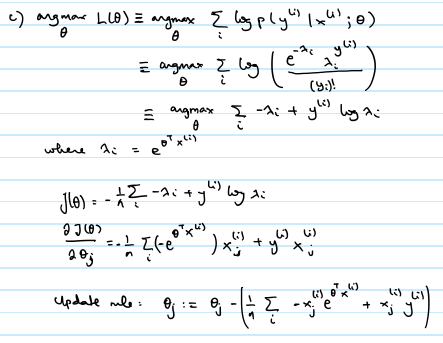 c) argmax_θ L(θ) ≡ argmax_θ Σ_i log p(y^(i) | x^(i); θ)
≡ argmax_θ Σ_i log (e^{-λ_i} λ_i^{y^(i)} / (y_i)!)
≡ argmax_θ Σ_i -λ_i + y^(i) log λ_i
where λ_i = e^{θ^T x^(i)}
J(θ) = -1/n Σ_i -λ_i + y^(i) log λ_i
∂J(θ)/∂θ_j = -1/n Σ_i (-e^{θ^T x^(i)}) x_j^(i) + y^(i) x_j^(i)
Update rule: θ_j := θ_j - (1/n Σ_i -x_j^(i) e^{θ^T x^(i)} + x_j^(i) y^(i))